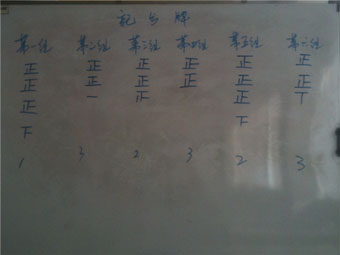 记分牌
第一组 第二组 第三组 第四组 第五组 第六组
正 正 正 正 正 正
正 正 正 正 正 正
正 一 正 正 丅
下 下
1 3 2 3 2 3